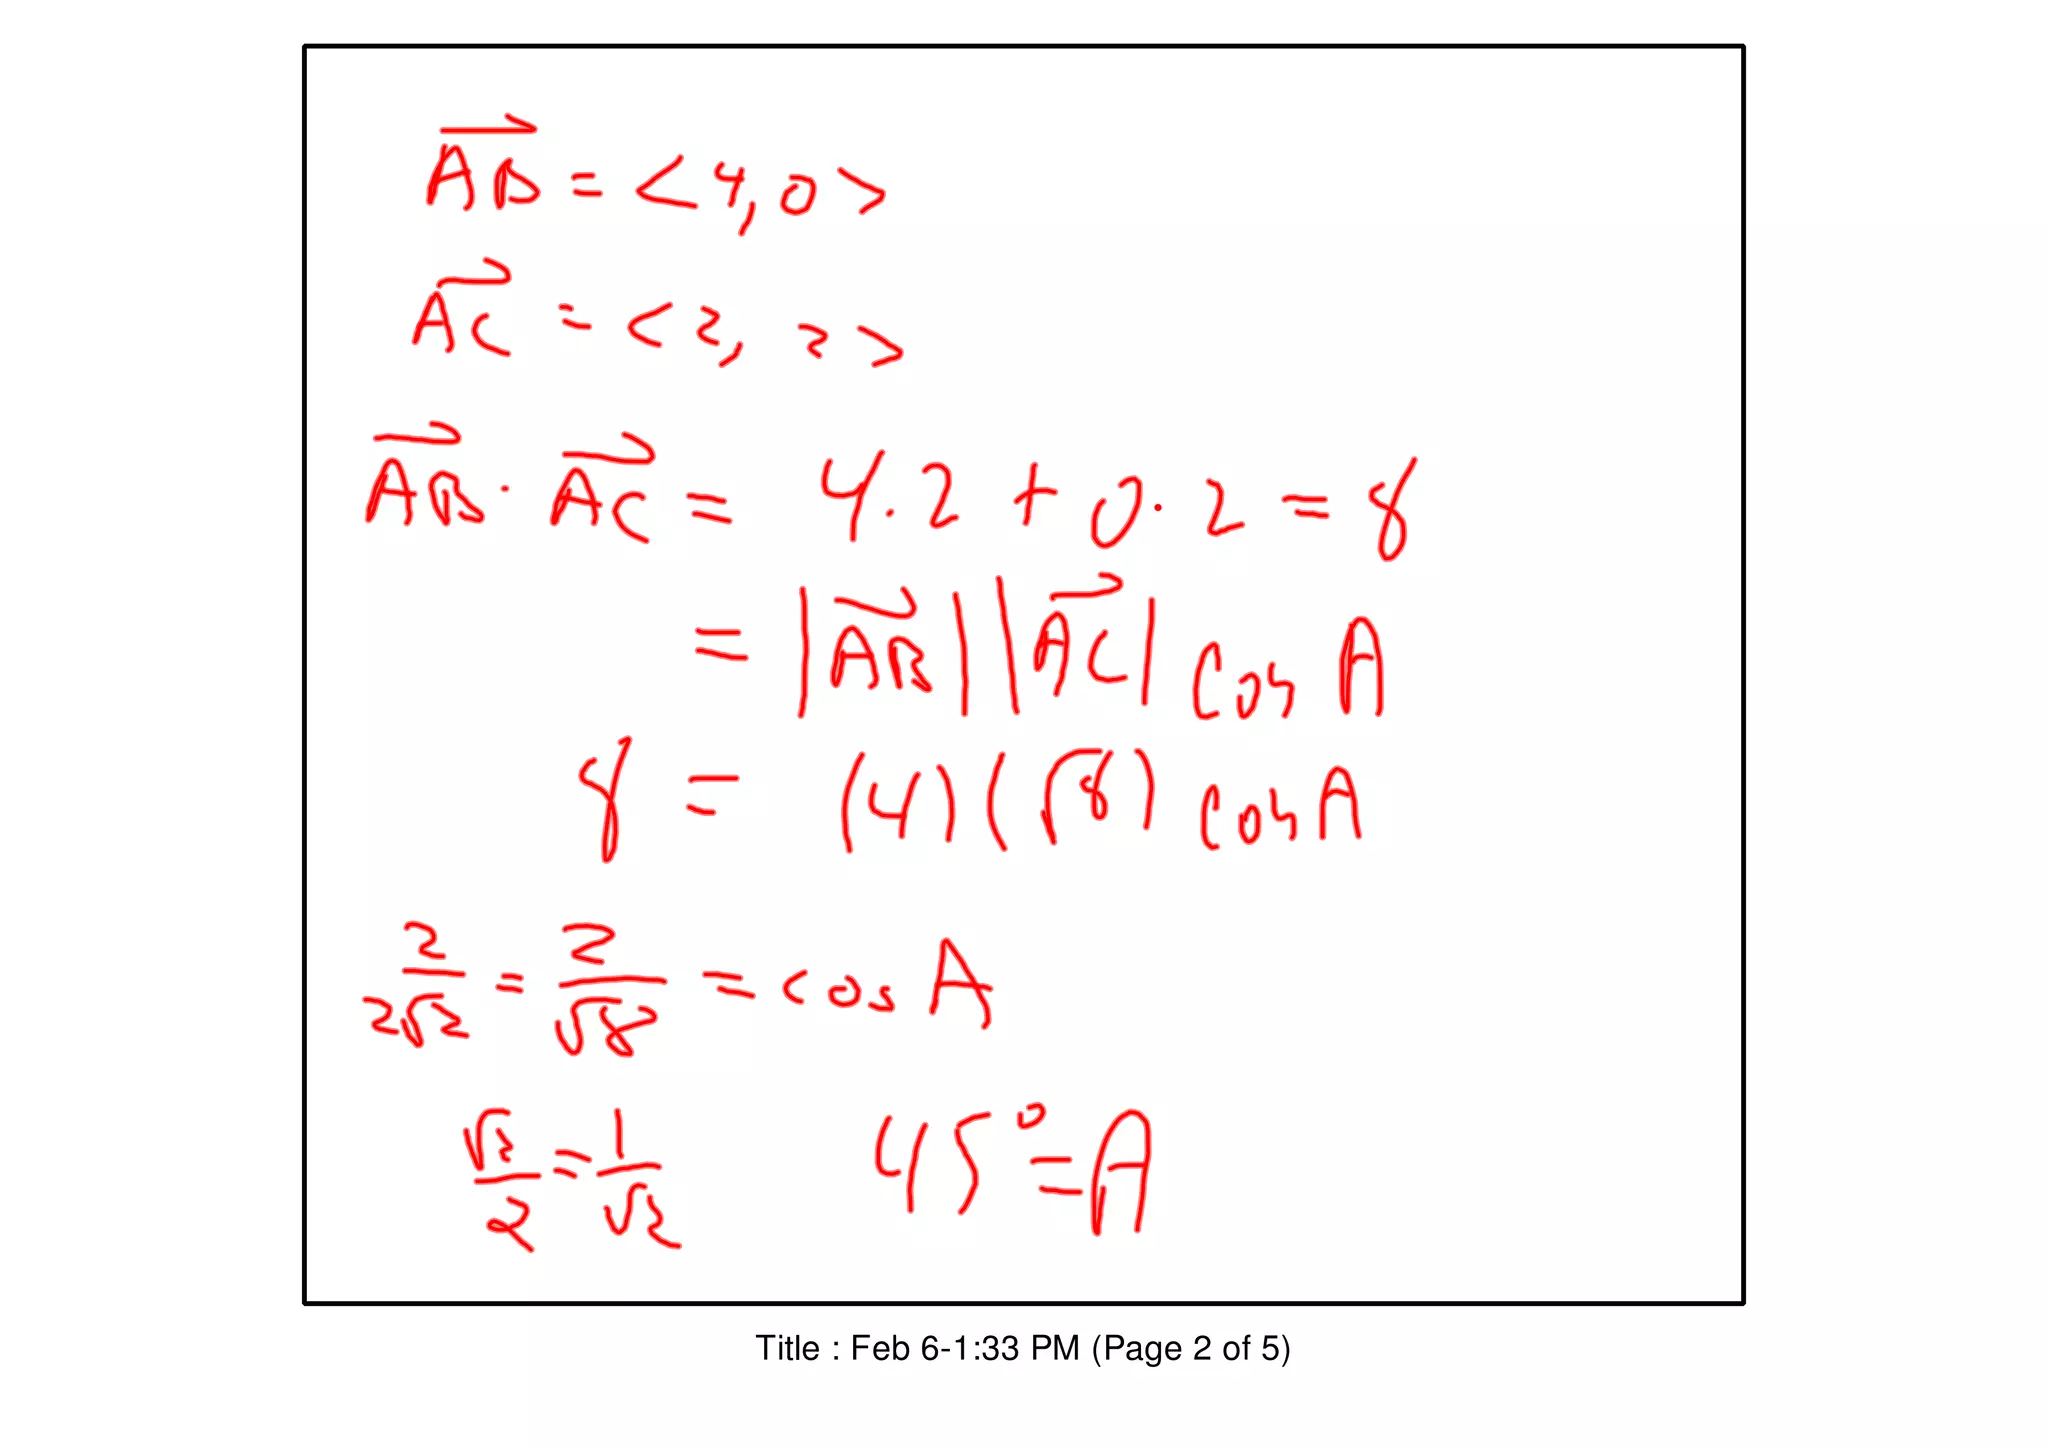 AB = <4,0>
AC = <2, 2>
AB · AC = 4·2 + 0·2 = 8
= |AB| |AC| cos A
8 = (4)(√8) cos A
2/2√2 = 2/√8 = cos A
√2/2 = 1/√2 45° = A
Title : Feb 6-1:33 PM (Page 2 of 5)